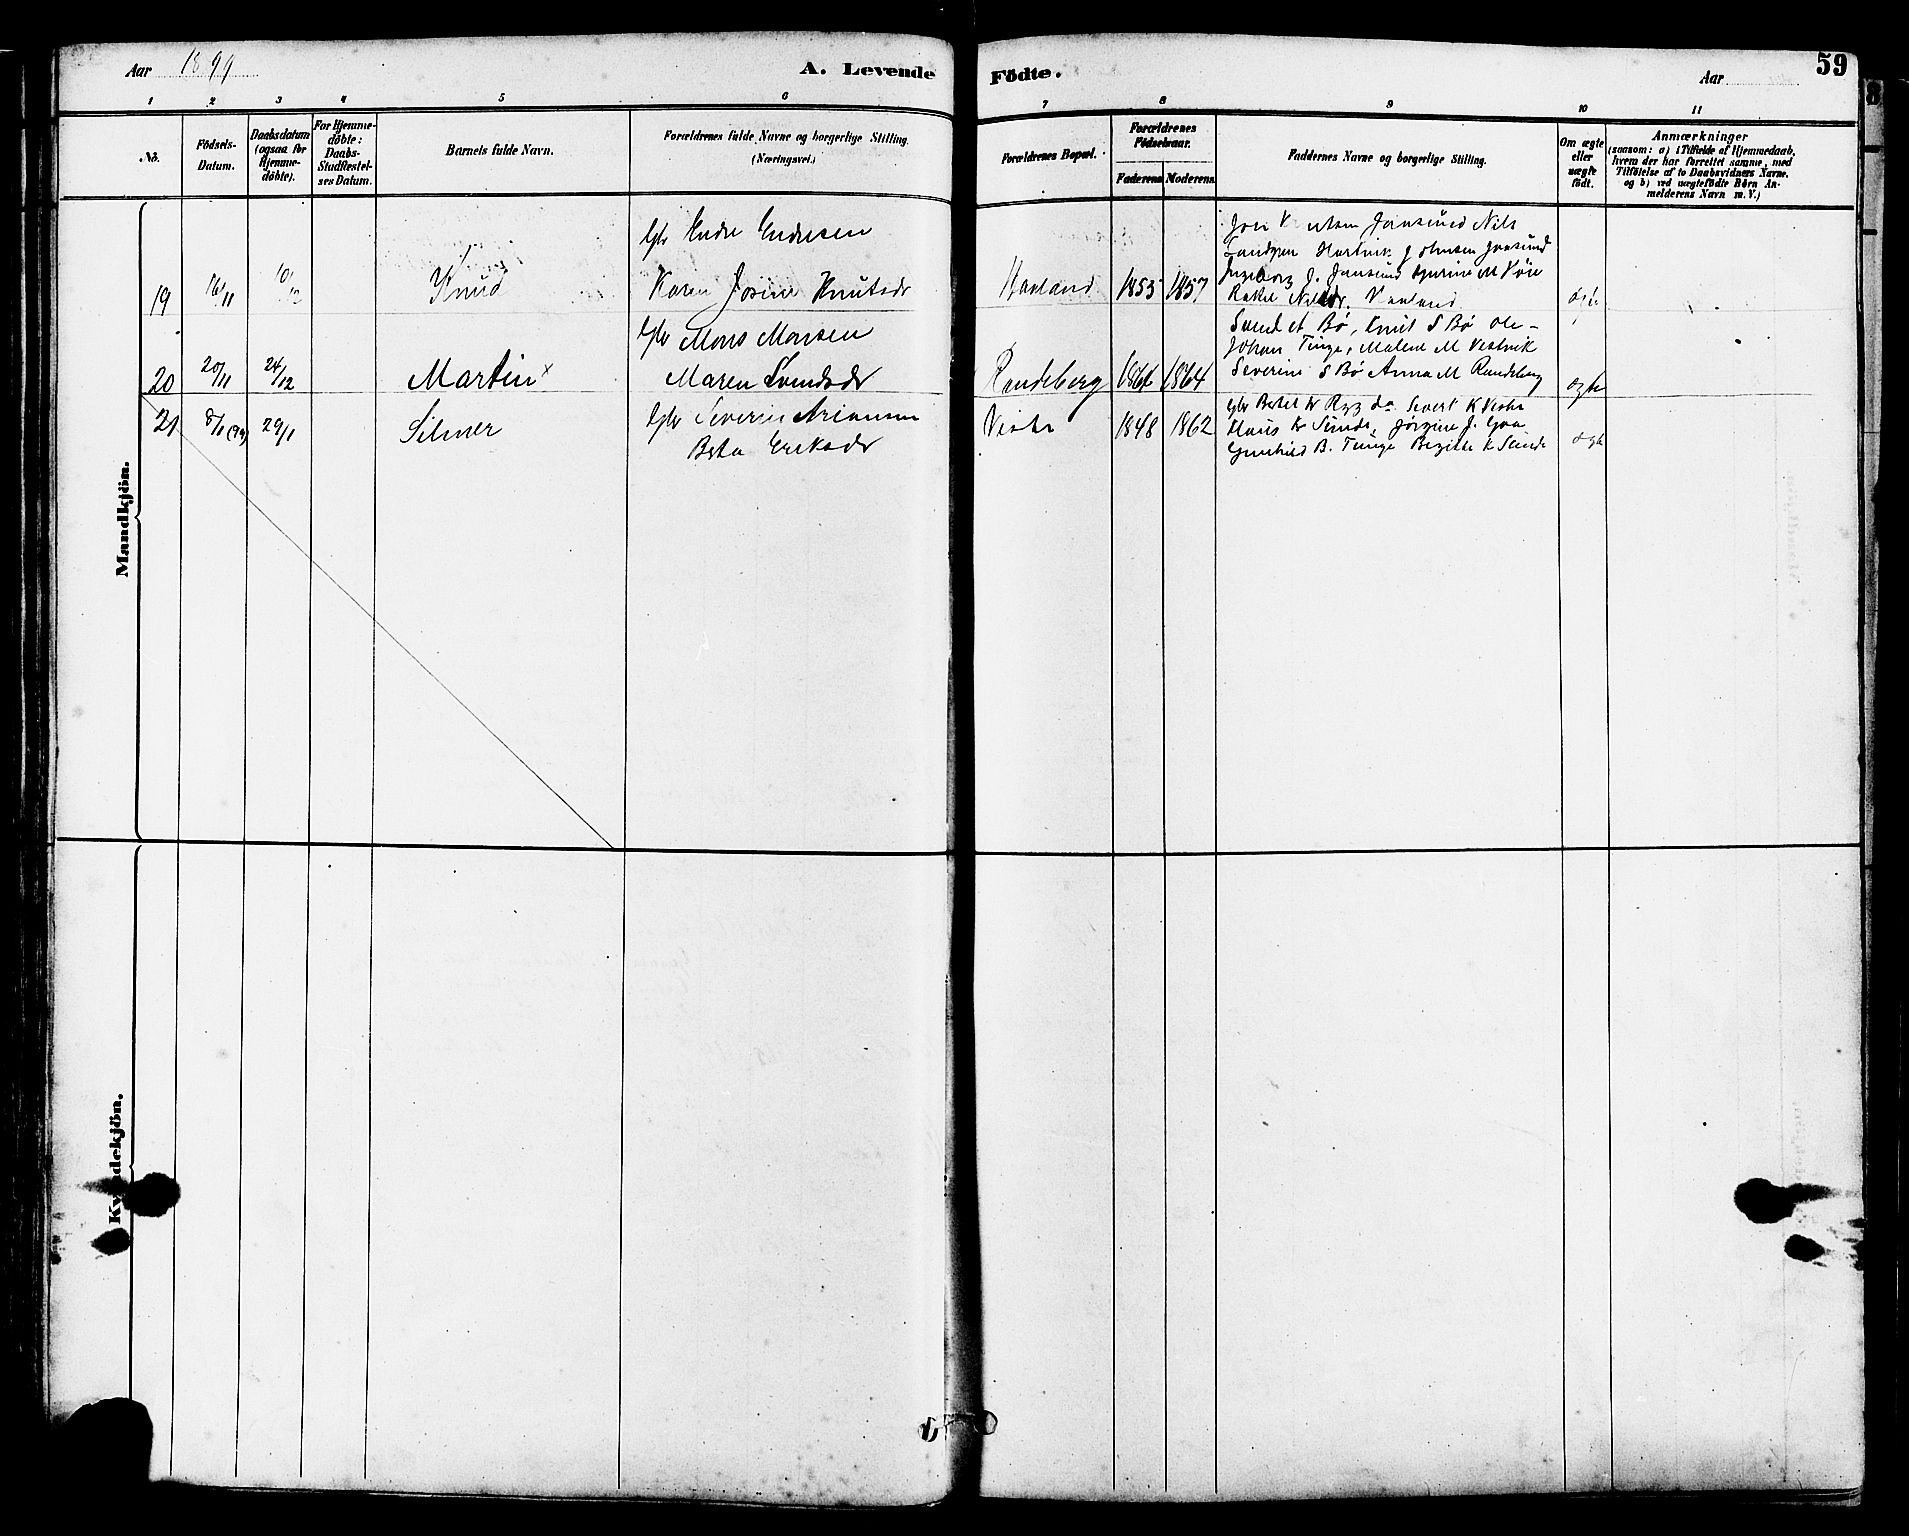 Aar 1899
A. Levende Födte.
Aar
59
1 2 3 4 5 6 7 8 9 10 11
No.
Födsels-
Datum.
Daabsdatum
(ogsaa for
Hjemme-
döbte).
For Hjemme-
döbte:
Daabs-
Stadfæstel-
ses Datum.
Barnets fulde Navn.
Forældrenes fulde Navne og borgerlige Stilling.
(Næringsvei.)
Forældrenes Bopæl.
Forældrenes
Födselsaar.
Faderens Moderens.
Faddernes Navne og borgerlige Stilling.
Om ægte
eller
uægte
födt.
Anmærkninger
(saasom: a) i Tilfælde af Hjemmedaab,
hvem der har forrettet samme, med
Tilföielse af to Daabsvidners Navne.
og b) ved uægtefödte Børn An-
melderens Navn m. V.)
Mandkjön.
19 16/11 10/12 Knud
Gbr Endre Endresen
Karen Josine Knutsdr
Haaland 1855 1857
Jon Jaasund Nils
Hartvik Johnsen Jaasund
Ingeborg J. Jaasund M Vöie
Rakel Nilsdr.
20 20/11 24/12 Martin x
Gbr Mons Monsen
Maren Svendsdr
Randeberg 1864
Svend A Bø, Knut S Bø Ole-
Johan Tunge, Malene M Vestvik
Severine S Bø Anna M Randeberg
ægte
21 8/11 (99) 29/1 Silmer
Gbr Severin Arianson
Berta Eriksdr
Viste 1848 1862
Gbr Bertel Rygg do Sivert K Viste
Hans Sunde, Jørgine J. Goa
Gunhild B. Tunge Birgitte K Sunde
ægte
Kvindekjön.